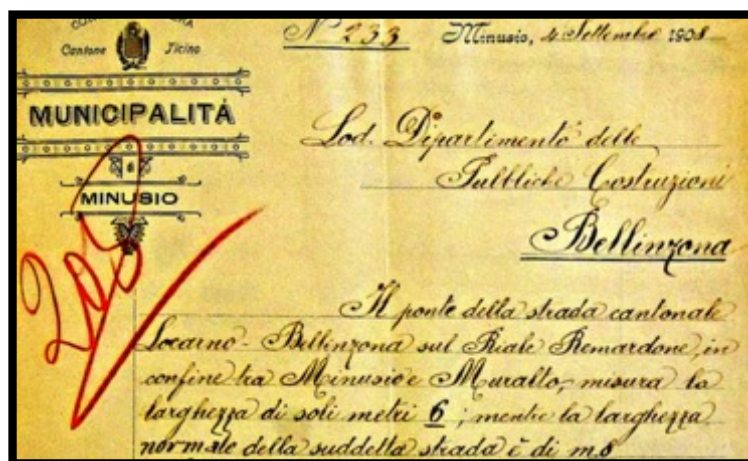 Cantone Ticino
MUNICIPALITÁ
MINUSIO
Nº 233 Minusio, 4 Settembre 1908
Lod. Dipartimento delle
Pubbliche Costruzioni
Bellinzona
Il ponte della strada cantonale
Locarno-Bellinzona sul Riale Remardone, in
confine tra Minusio e Muralto, misura la
larghezza di soli metri 6; mentre la larghezza
normale della suddetta strada è di m. 8